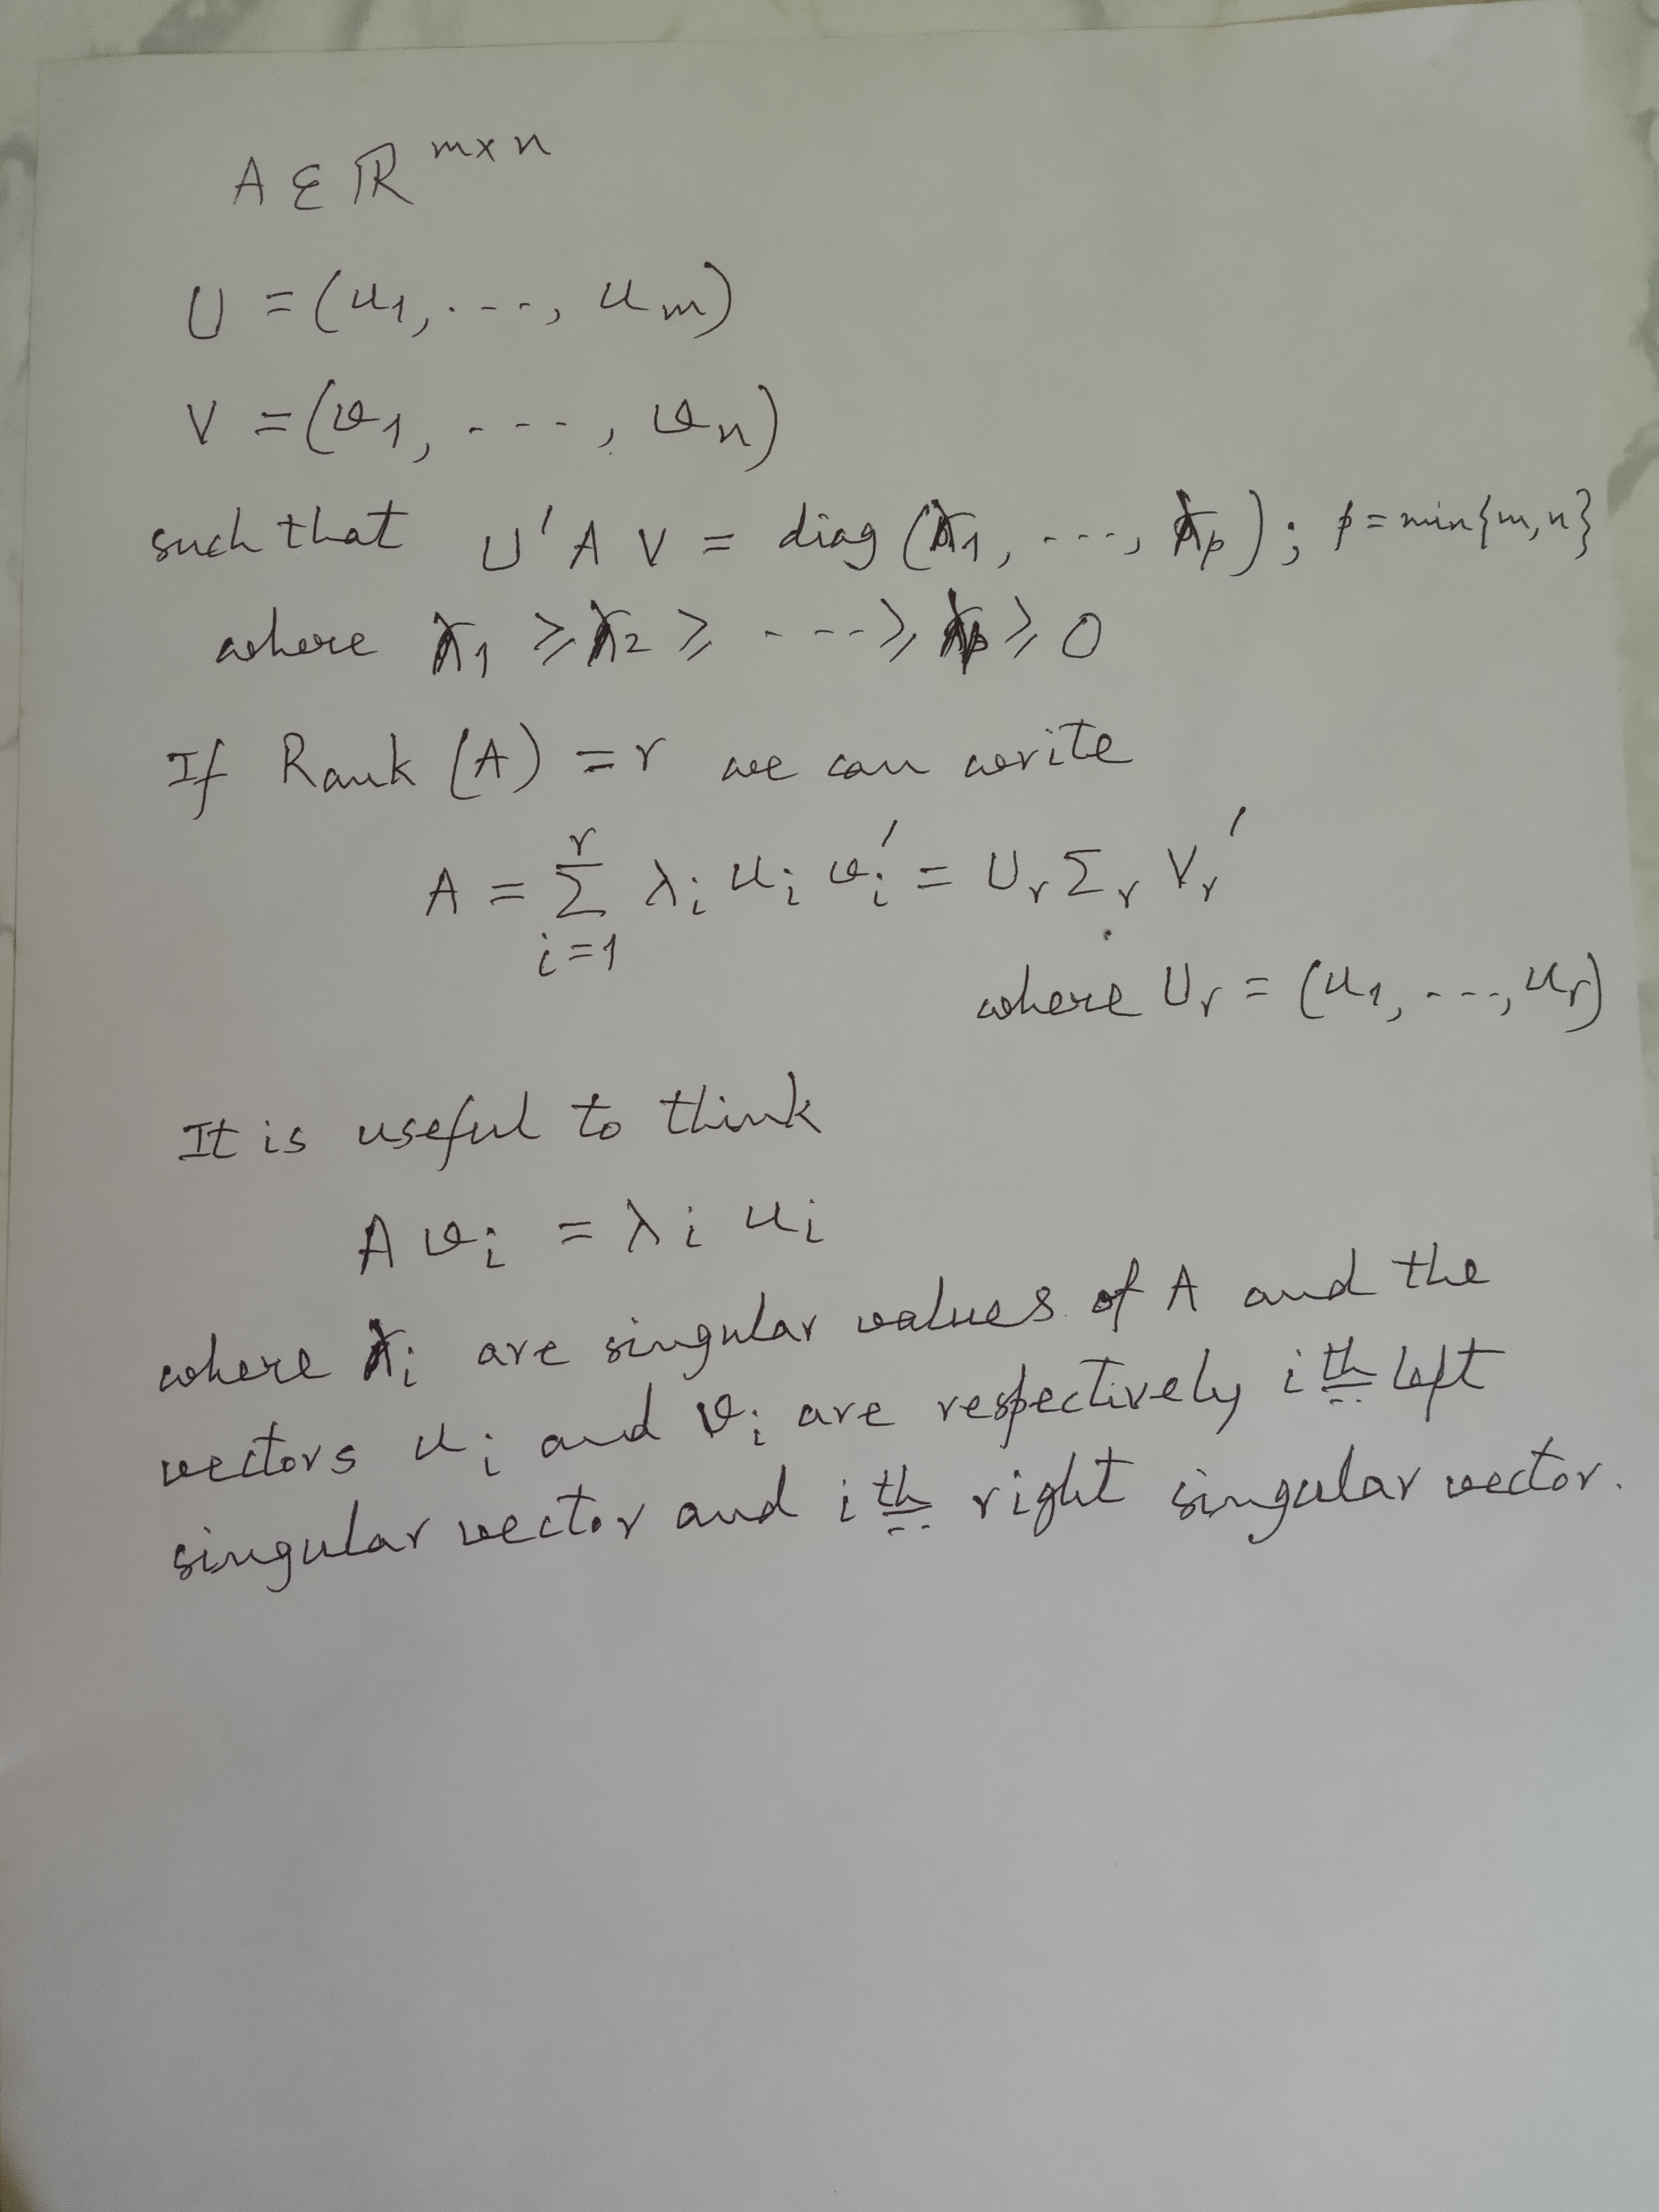 A ∈ ℝ^{m×n}
U = (u₁, ..., u_m)
V = (v₁, ..., v_n)
such that U'AV = diag(λ₁, ..., λ_p); p = min{m,n}
where λ₁ ⩾ λ₂ ⩾ ... ⩾ λ_p ⩾ 0
If Rank (A) = r we can write
A = ∑_{i=1}^{r} λ_i u_i v_i' = U_r Σ_r V_r'
where U_r = (u₁, ..., u_r)
It is useful to think
A v_i = λ_i u_i
where λ_i are singular values of A and the
vectors u_i and v_i are respectively ith left
singular vector and ith right singular vector.